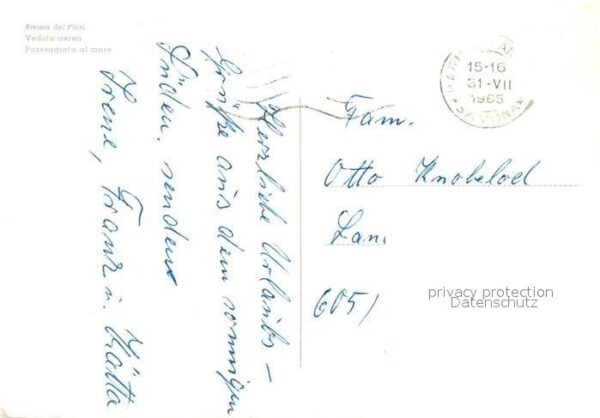 Riviera dei Fiori
Veduta aerea
Passeggiata al mare
Herzliche Urlaubs-
Grüße aus dem sonnigen
Süden senden
Irene, Franz u.
15-16
31-VII
1965
SAVONA
Fam.
Otto Knobeloch
6051
privacy protection
Datenschutz